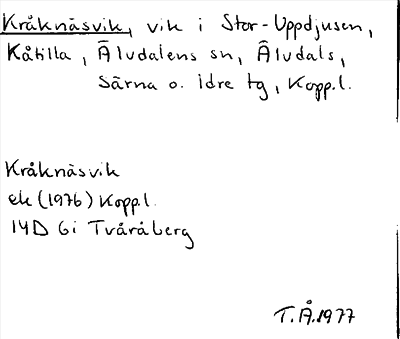 Kråknäsvik, vik i Stor-Uppdjusen,
Kåtilla, Älvdalens sn, Älvdals,
Särna o. Idre tg, Kopp.l.
Kråknäsvik
ek (1976) Kopp.l.
14D 6i Tvåråberg
T.Å.1977